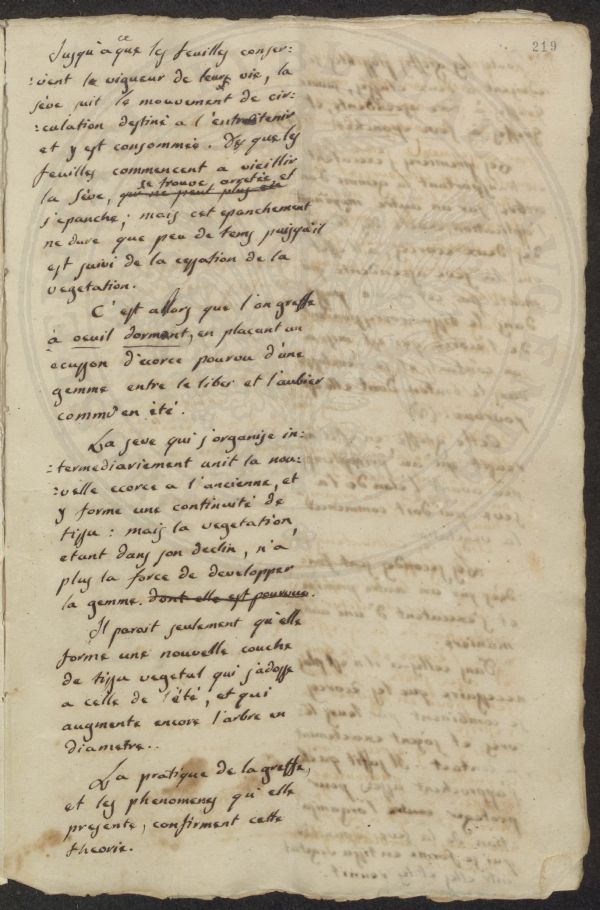 219
Jusqu'à ce que les feuilles conser:
:vient la vigueur de leur vie, la
sève suit le mouvement de cir:
:culation destiné a l'entretenir
et y est consommée. Des que les
feuilles commencent a vieillir
la sève, qui ne peut plus etre
se trouve arretée, et
s'epanche; mais cet epanchement
ne dure que peu de tems puisqu'il
est suivi de la cessation de la
vegetation.
C'est allors que l'on greffe
à oeuil dormant, en plaçant un
ecusson d'ecorce pourvu d'une
gemme entre le liber et l'aubier
comme en été.
La seve qui s'organise in:
:termediairiement unit la nou:
:velle ecorce a l'ancienne, et
y forme une continuité de
tissu: mais la vegetation,
etant dans son declin, n'a
plus la force de developper
la gemme. dont elle est pourvue.
Il parait seulement qu'elle
forme une nouvelle couche
de tissu vegetal qui s'adosse
a celle de l'été, et qui
augmente encore l'arbre en
diametre..
La pratique de la greffe,
et les phenomenes qu'elle
presente, confirment cette
theorie.